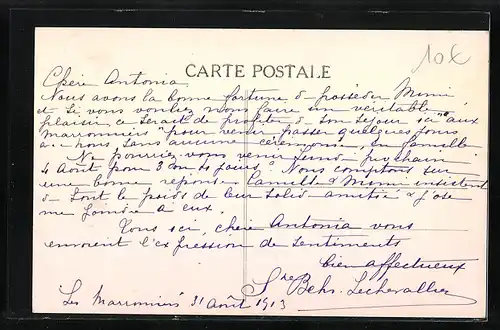 10€
CARTE POSTALE
Chère Antonia
Nous avons la bonne fortune de posséder Mimi
et si vous vouliez nous faire un véritable
plaisir, ce serait de profiter de son séjour ici "aux
marronniers" pour venir passer quelques jours
avec nous, sans aucune cérémonie, en famille
Ne pourriez-vous venir lundi prochain
4 Août pour 3 ou 4 jours? Nous comptons sur
une bonne réponse. Camille & Mimi insistent
de tout le poids de leur solide amitié & j'ose
me joindre à eux.
Tous ici, chère Antonia vous
envoient l'expression de sentiments
bien affectueux
Behr. Lechevallier
Les Marronniers 31 Août 1913